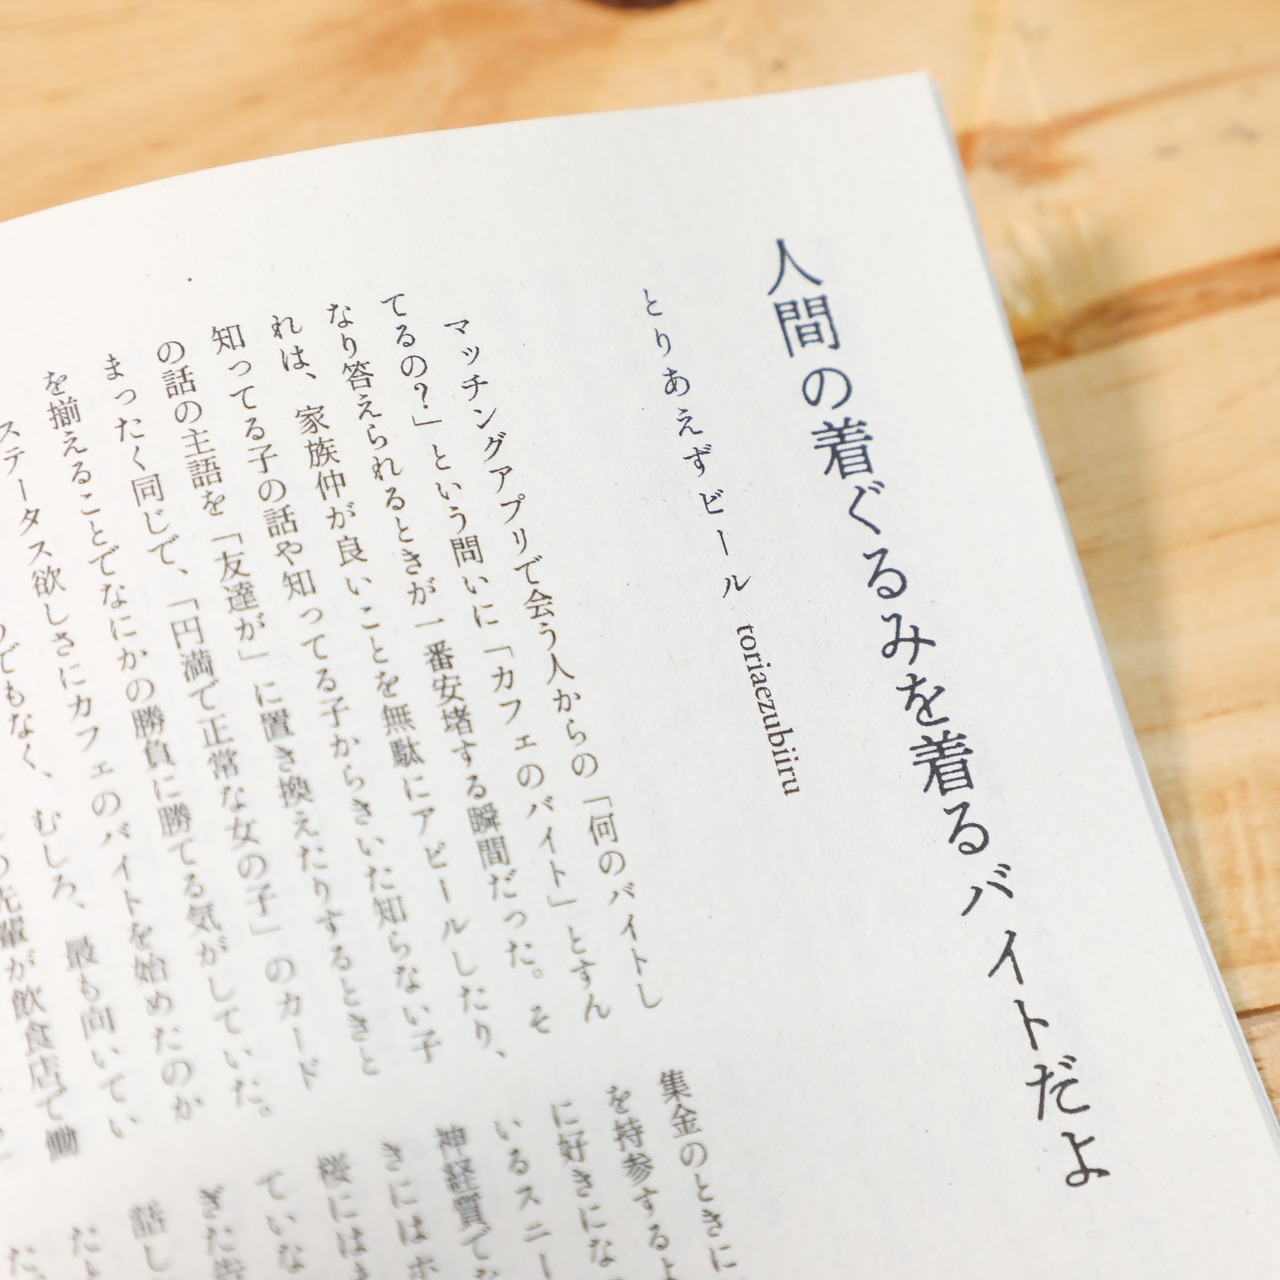 人間の着ぐるみを着るバイトだよ
とりあえずビール toriaezubiiru
マッチングアプリで会う人からの「何のバイトし
てるの？」という問いに「カフェのバイト」とすん
なり答えられるときが一番安堵する瞬間だった。そ
れは、家族仲が良いことを無駄にアピールしたり、
知ってる子の話や知ってる子からきいた知らない子
の話の主語を「友達が」に置き換えたりするときと
まったく同じで、「円満で正常な女の子」のカード
を揃えることでなにかの勝負に勝てる気がしていた。
ステータス欲しさにカフェのバイトを始めたのか
でもなく、むしろ、最も向いてい
先輩が飲食店で働
集金のときに
を持参するよ
に好きにな
いるスニー
神経質でな
きにはホ
桜にはき
ていな
ぎた告
話し
たと
た、